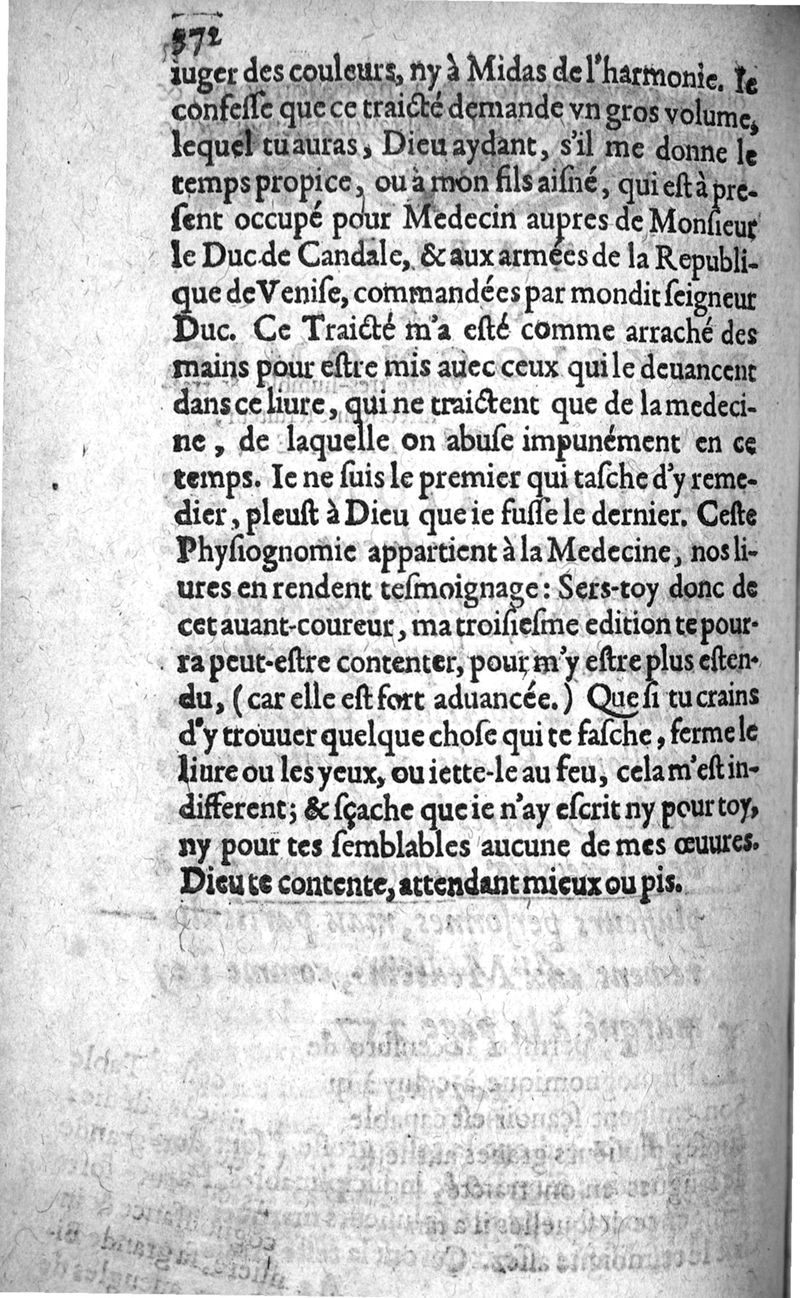 372
iuger des couleurs, ny à Midas de l'harmonie. Ie
confeſſe que ce traicté demande vn gros volume,
lequel tu auras, Dieu aydant, s'il me donne le
temps propice, ou à mon fils aiſné, qui eſt à pre-
ſent occupé pour Medecin aupres de Monſieur
le Duc de Candale, & aux armées de la Republi-
que de Veniſe, commandées par mondit ſeigneur
Duc. Ce Traicté m'a eſté comme arraché des
mains pour eſtre mis auec ceux qui le deuancent
dans ce liure, qui ne traictent que de la medeci-
ne, de laquelle on abuſe impunément en ce
temps. Ie ne ſuis le premier qui taſche d'y reme-
dier, pleuſt à Dieu que ie fuſſe le dernier. Ceſte
Phyſiognomie appartient à la Medecine, nos li-
ures en rendent teſmoignage: Sers-toy donc de
cet auant-coureur, ma troiſieſme edition te pour-
ra peut-eſtre contenter, pour m'y eſtre plus eſten-
du, (car elle eſt fort aduancée.) Que ſi tu crains
d'y trouuer quelque choſe qui te faſche, ferme le
liure ou les yeux, ou iette-le au feu, cela m'eſt in-
different; & ſçache que ie n'ay eſcrit ny pour toy,
ny pour tes ſemblables aucune de mes œuures.
Dieu te contente, attendant mieux ou pis.